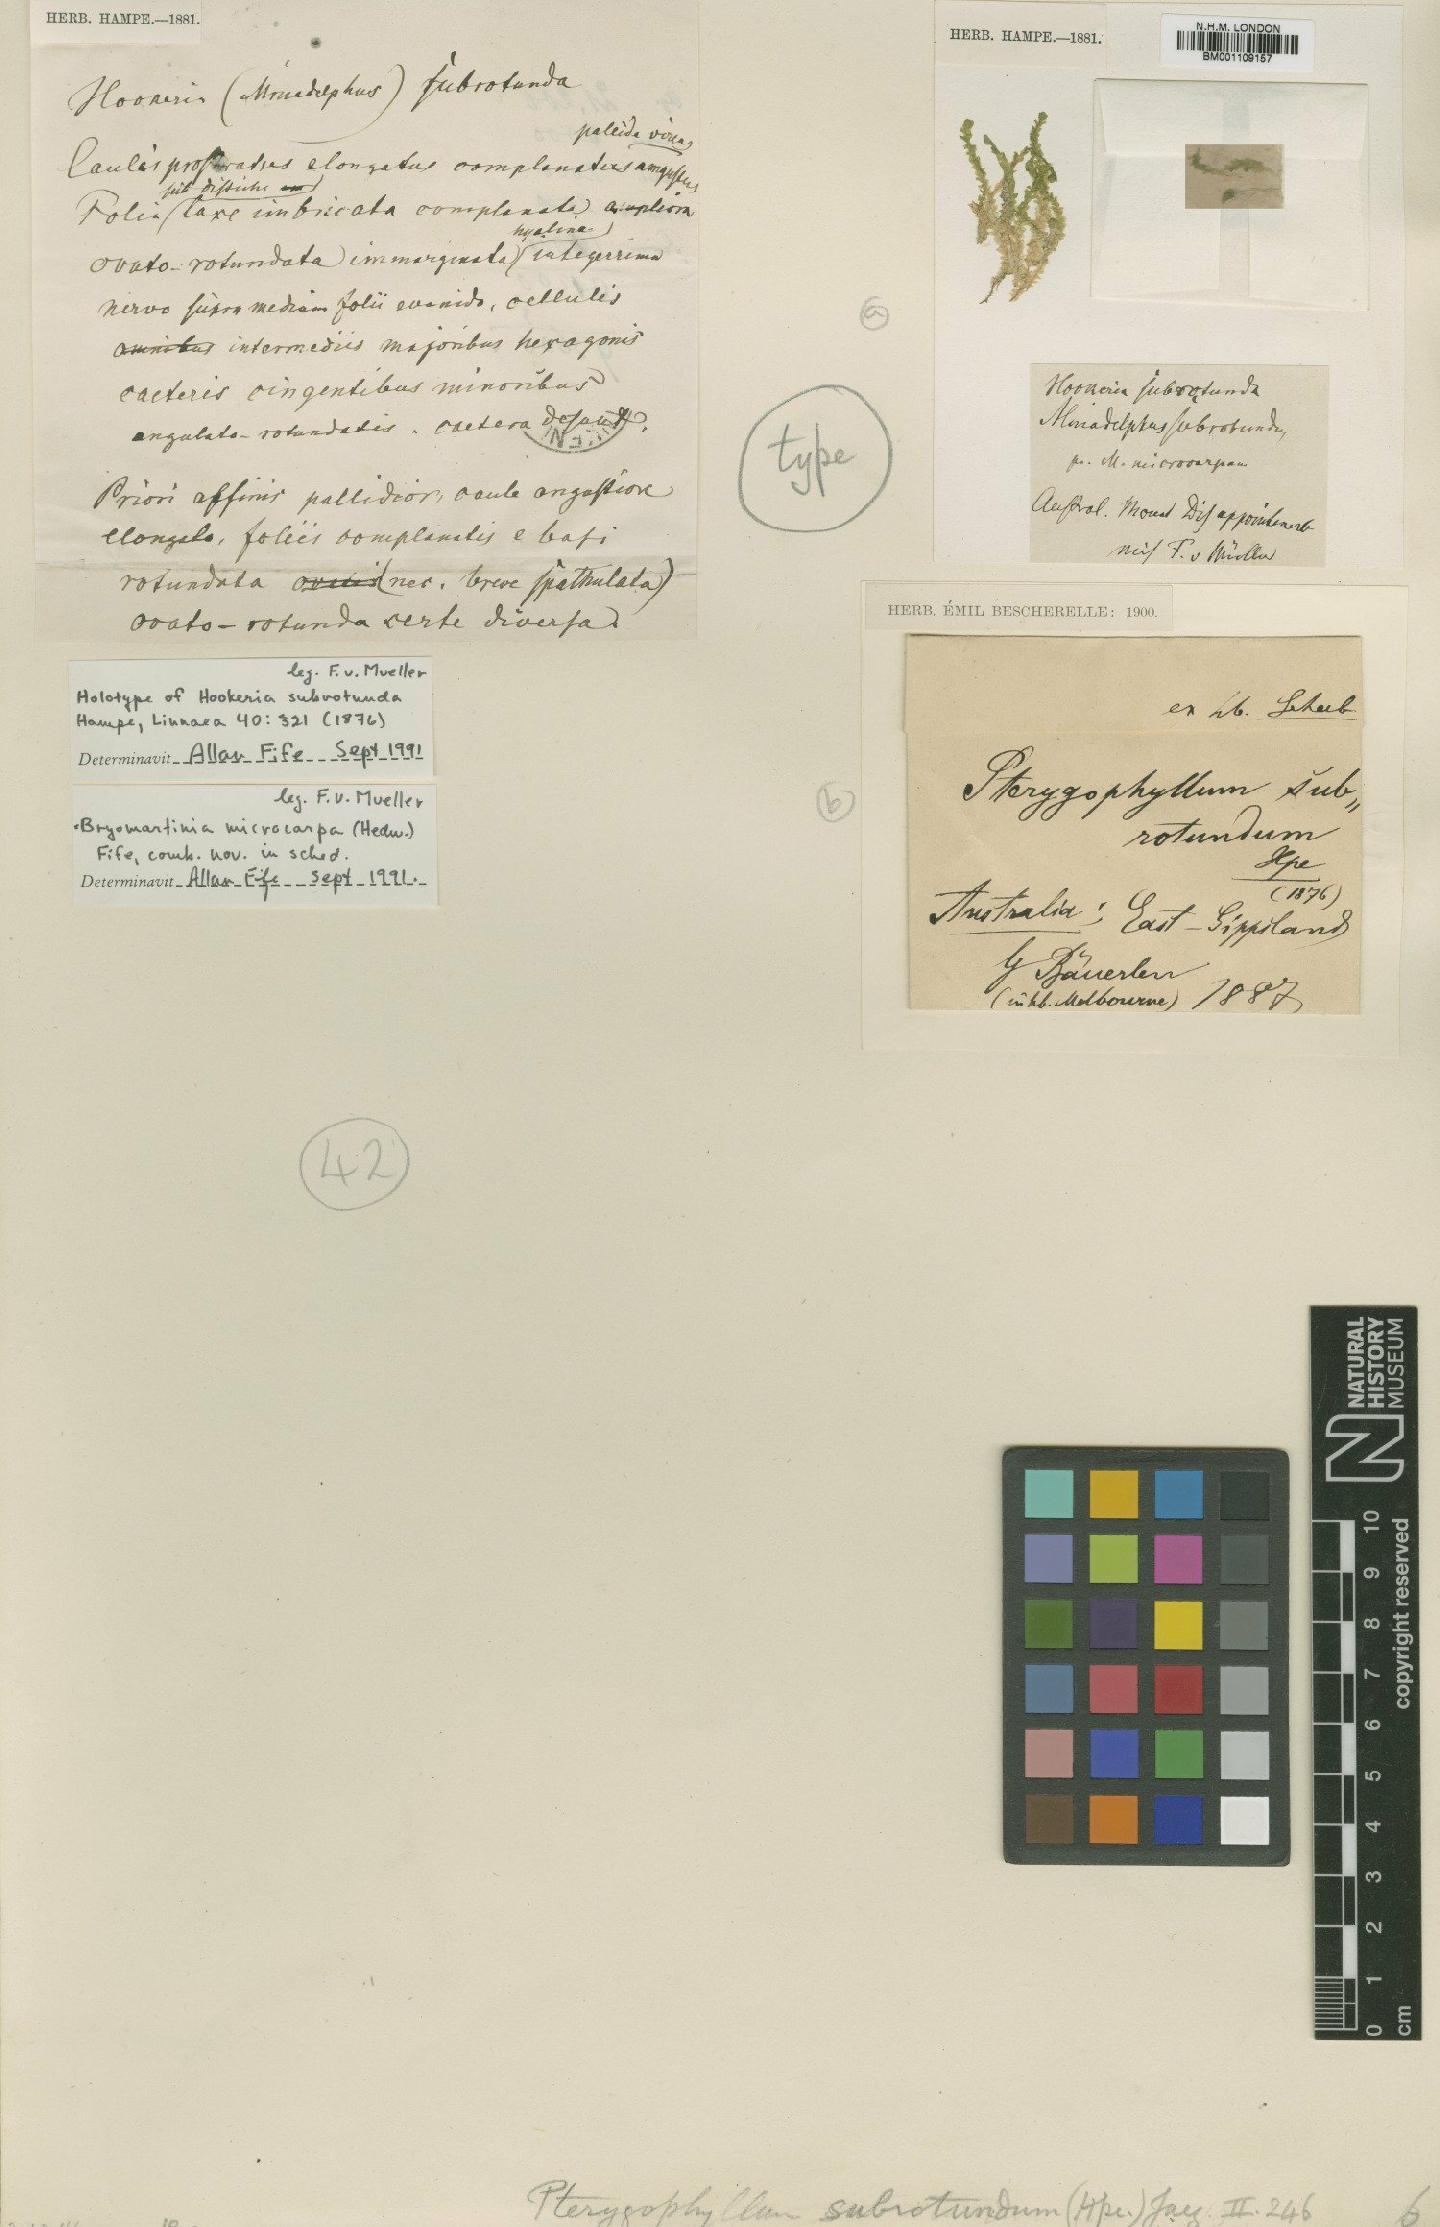 HERB. HAMPE.—1881.
Hookeria (Mniadelphus) subrotunda
pallide virens
Caulis prostratus elongatus complanatus angustus
sub disticha
Folia laxe imbricata complanata ampliora
hyalina
ovato-rotundata immarginata integerrima
nervo supra medium folii evanido, cellulis
omnibus intermediis majoribus hexagonis
caeteris cingentibus minoribus
angulato-rotundatis. caetera desunt.
Priori affinis pallidior, caule angustiore
elongato, foliis complanatis e basi
rotundata (nec. breve spathulata)
ovato-rotunda certe diversa.
leg. F. v. Mueller
Holotype of Hookeria subrotunda
Hampe, Linnaea 40: 321 (1876)
Determinavit Allan Fife Sept 1991
leg. F. v. Mueller
Bryomartinia microcarpa (Hedw.)
Fife, comb. nov. in sched.
Determinavit Allan Fife Sept 1991.
42
HERB. HAMPE.—1881.
N.H.M. LONDON
BM001109157
a
type
Hookeria subrotunda
Mniadelphus subrotundus,
pr. M. microcarpum
Austral. Mount Disappointment
mis F. v Müller
HERB. ÉMIL BESCHERELLE: 1900.
b
ex hb. Geheeb
Pterygophyllum sub„
rotundum
Hpe
(1876)
Australia: East-Gippsland
lg Bäuerlen
(in hb. Melbourne) 1887
NATURAL
HISTORY
MUSEUM
10
9
8
7
6
5
4
3
2
1
0
cm
copyright reserved
Pterygophyllum subrotundum (Hpe.) Jaeg. II. 246
6